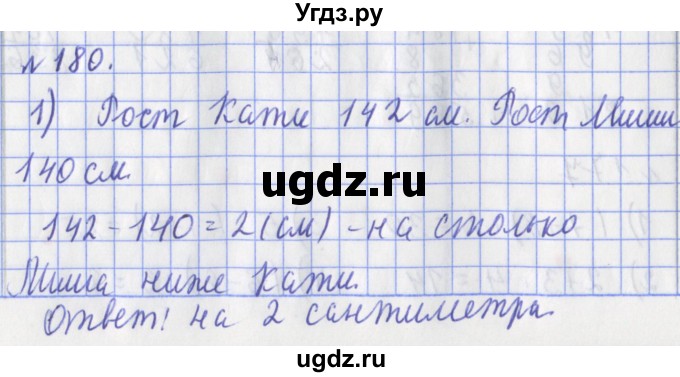 Угдз.ру
№ 180.
1) Рост Кати 142 см. Рост Миши
140 см.
ugdz.ru
142 - 140 = 2 (см) - на столько
Миша ниже Кати.
Ответ: на 2 сантиметра.
ugdz.ru